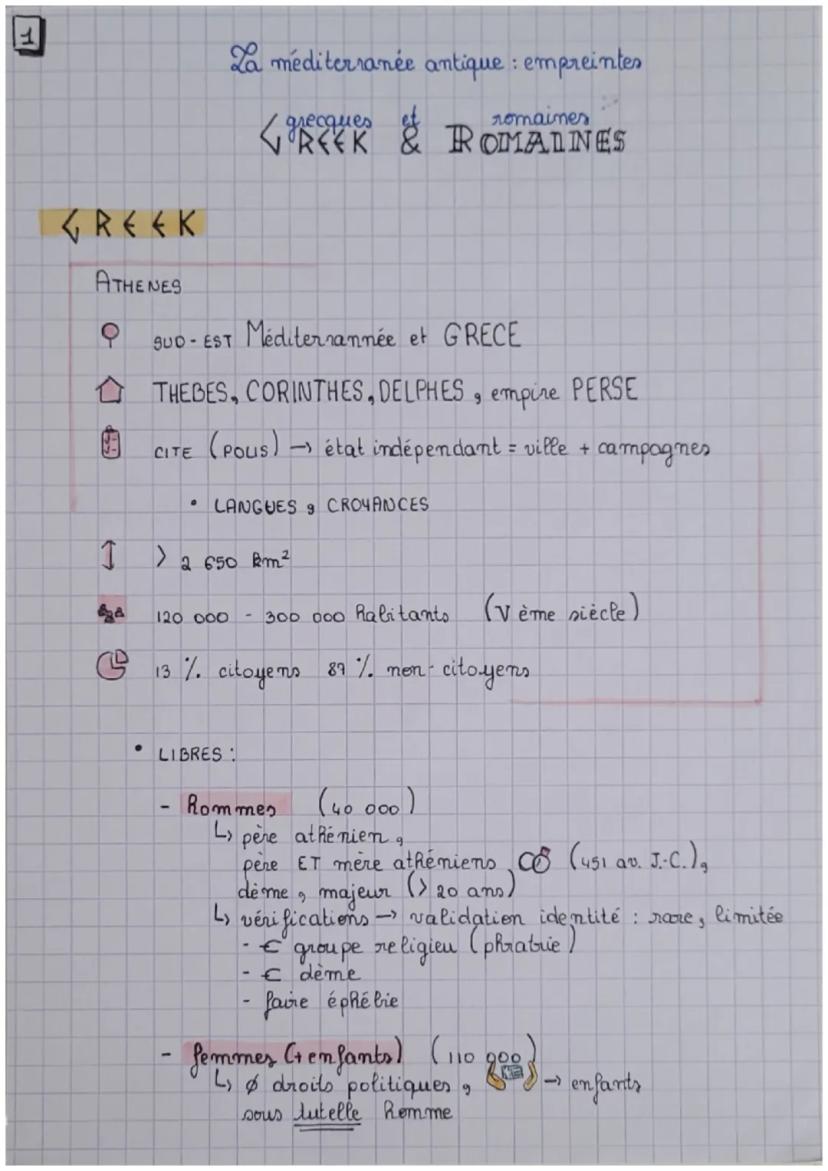 1
La méditerranée antique : empreintes
grecques et romaines
GREEK & ROMAINES
GREEK
ATHENES
SUD-EST Méditerrannée et GRECE
THEBES, CORINTHES, DELPHES, empire PERSE
CITE (POLIS) → état indépendant = ville + campagnes
• LANGUES, CROYANCES
> 2 650 km²
120 000 - 300 000 habitants (V ème siècle)
13 % citoyens 87 % non-citoyens
• LIBRES :
- hommes (40 000)
↳ père athénien,
père ET mère athéniens (451 av. J.-C.),
dème, majeur (> 20 ans)
↳ vérifications → validation identité : rare, limitée
- € groupe religieu (phratrie)
- € dème
- faire éphébie
- femmes (+ enfants) (110 000)
↳ Ø droits politiques, → enfants
sous tutelle homme